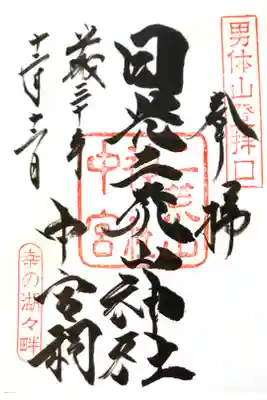 男体山登拝口
奉拝
日光二荒山神社
中宮祠
二荒山神社中宮
平成三十年
十二月十六日
幸の湖々畔